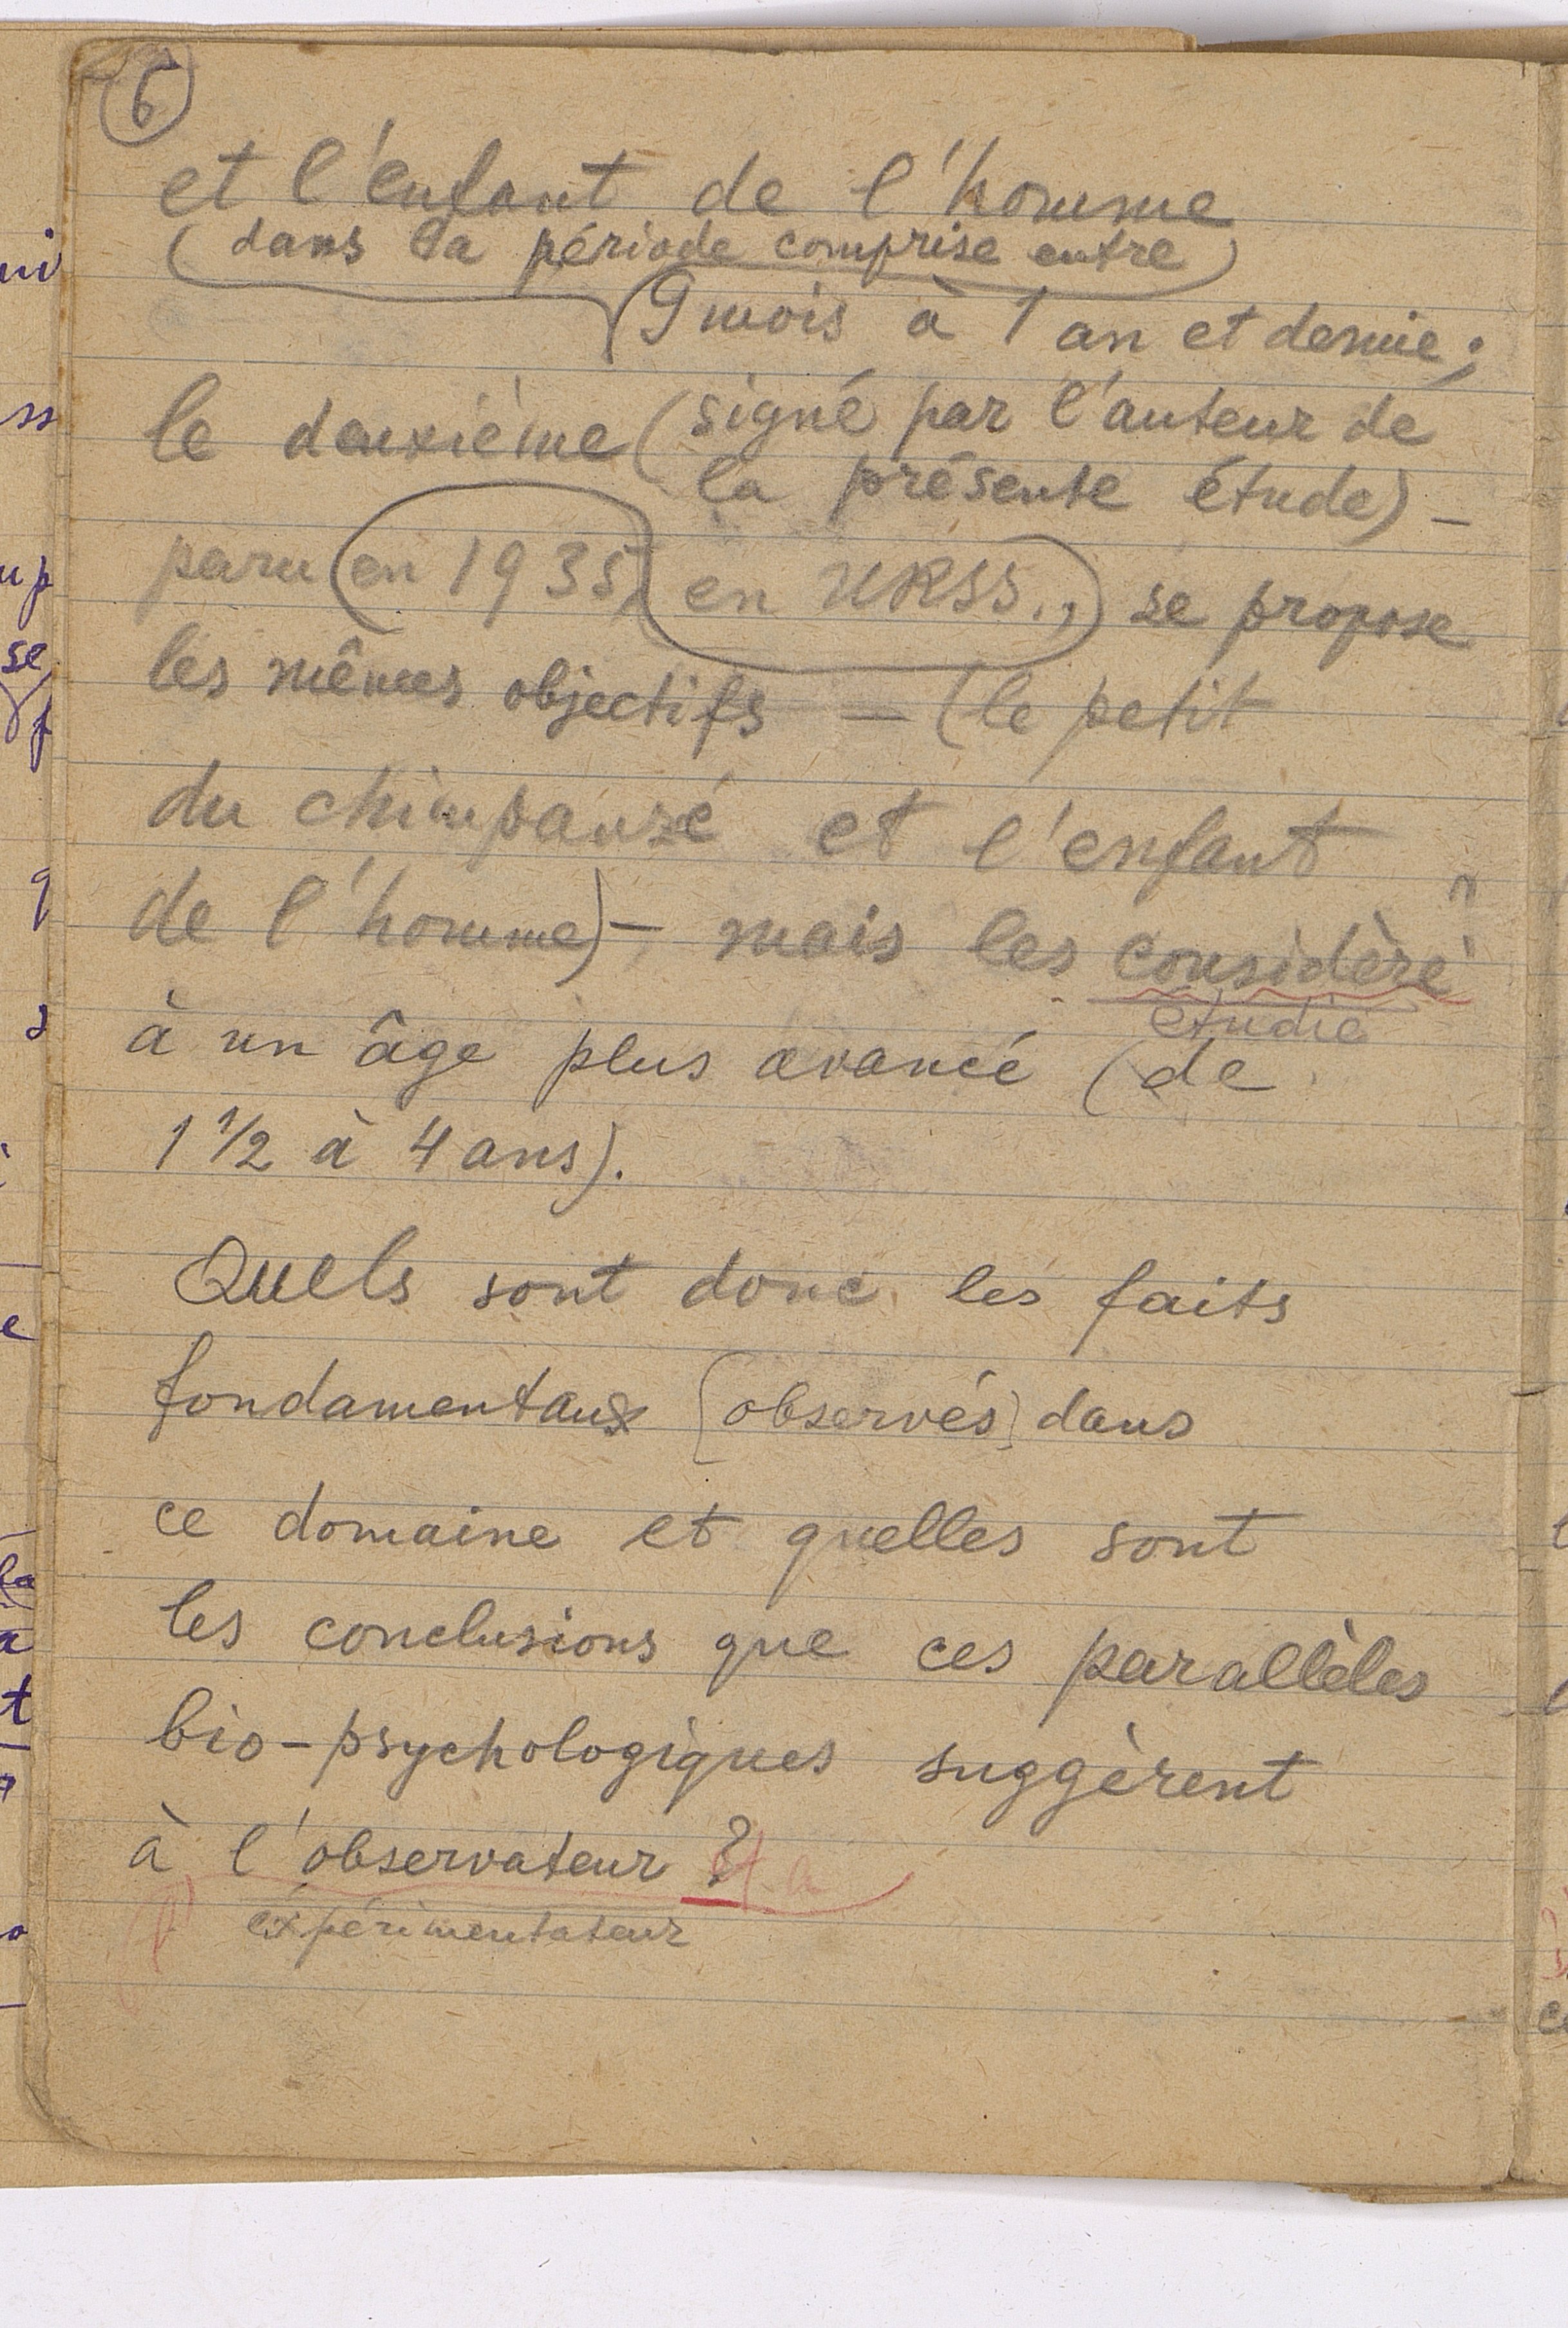 6
et l'enfant de l'homme
(dans la période comprise entre)
(9 mois à 1 an et demie;
le deuxième (signé par l'auteur de
la présente étude) –
paru (en 1935) (en URSS.,) se propose
les mêmes objectifs – (le petit
du chimpanzé et l'enfant
de l'homme) – mais les considère
étudie
à un âge plus avancé (de
1 1/2 à 4 ans).
Quels sont donc les faits
fondamentaux [observés] dans
ce domaine et quelles sont
les conclusions que ces parallèles
bio-psychologiques suggèrent
à l'observateur ?
expérimentateur